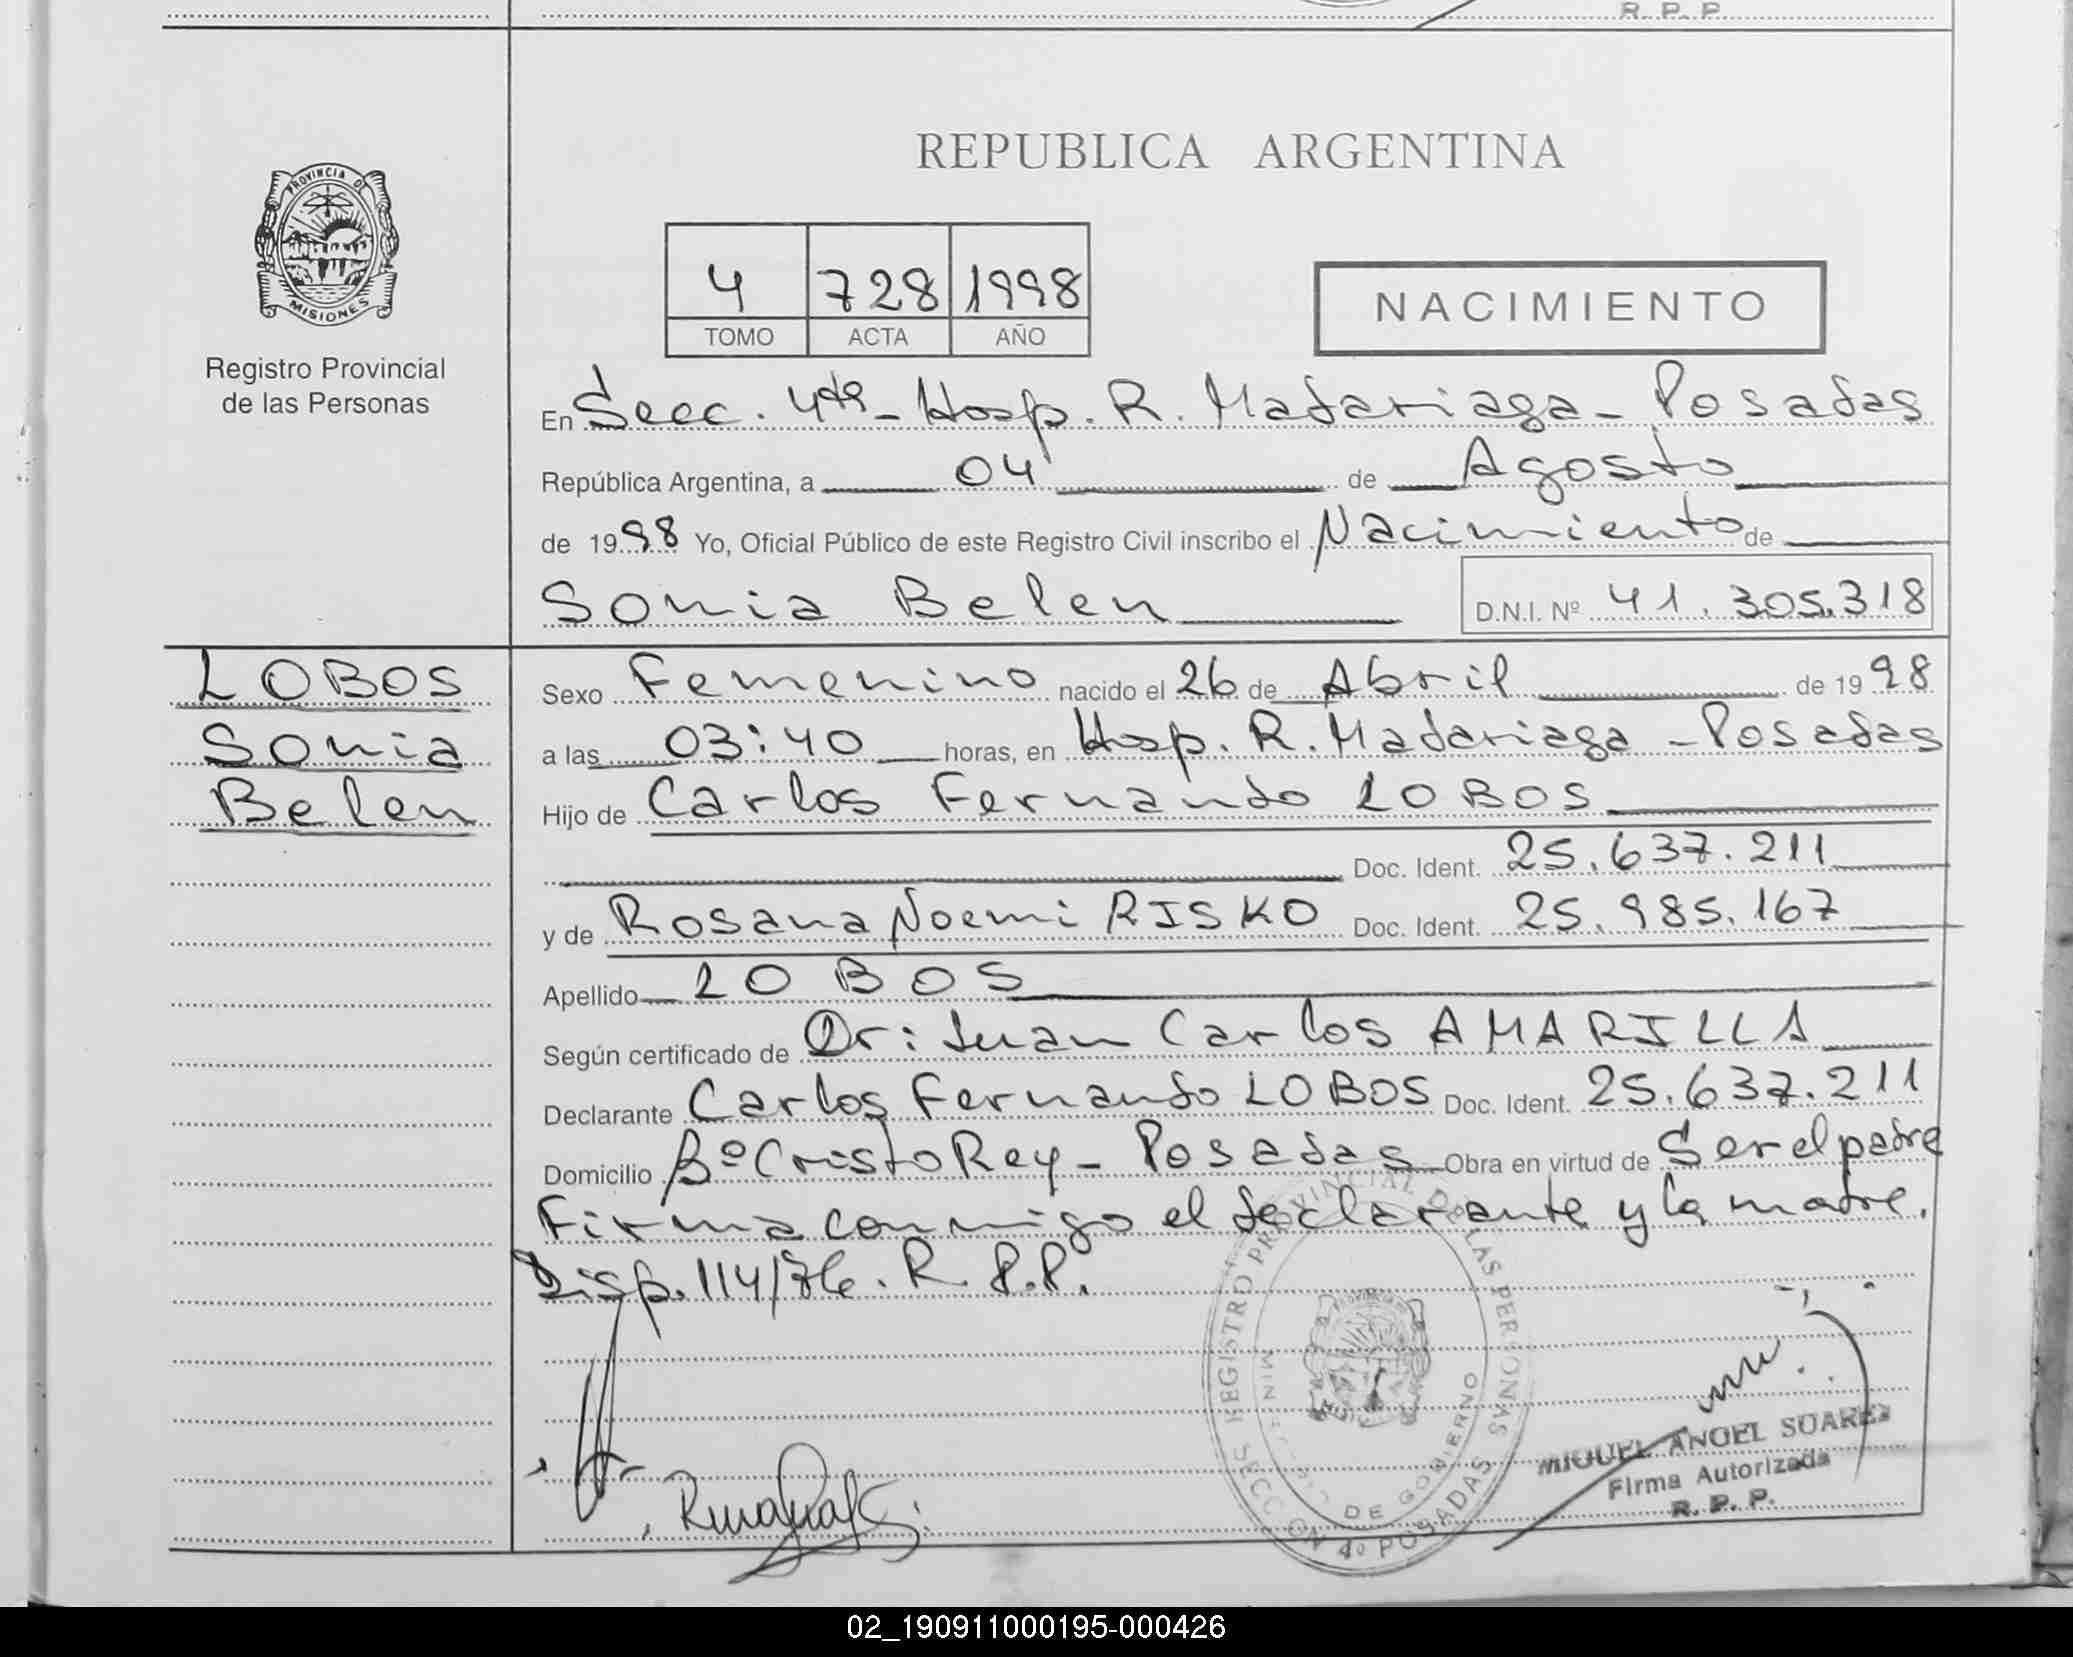 R. P. P
REPUBLICA ARGENTINA
PROVINCIA DE
MISIONES
Registro Provincial
de las Personas
4 728 1998
TOMO ACTA AÑO
NACIMIENTO
En Secc. 4ta - Hosp. R. Madariaga - Posadas
República Argentina, a 04 de Agosto
de 1998 Yo, Oficial Público de este Registro Civil inscribo el Nacimiento de
Sonia Belen D.N.I. Nº 41.305.318
LOBOS
Sonia
Belen
Sexo Femenino nacido el 26 de Abril de 1998
a las 03:40 horas, en Hosp. R. Madariaga - Posadas
Hijo de Carlos Fernando LOBOS
Doc. Ident. 25.637.211
y de Rosana Noemi RISKO Doc. Ident. 25.985.167
Apellido LOBOS
Según certificado de Dr: Juan Carlos AMARILLA
Declarante Carlos Fernando LOBOS Doc. Ident. 25.637.211
Domicilio Bº Cristo Rey - Posadas Obra en virtud de Ser el padre
Firma conmigo el declarante y la madre.
Disp. 114/76. R.P.P.
REGISTRO PROVINCIAL DE LAS PERSONAS
MINISTERIO DE GOBIERNO
SECCION 4º POSADAS
MIGUEL ANGEL SUAREZ
Firma Autorizada
R. P. P.
02_190911000195-000426